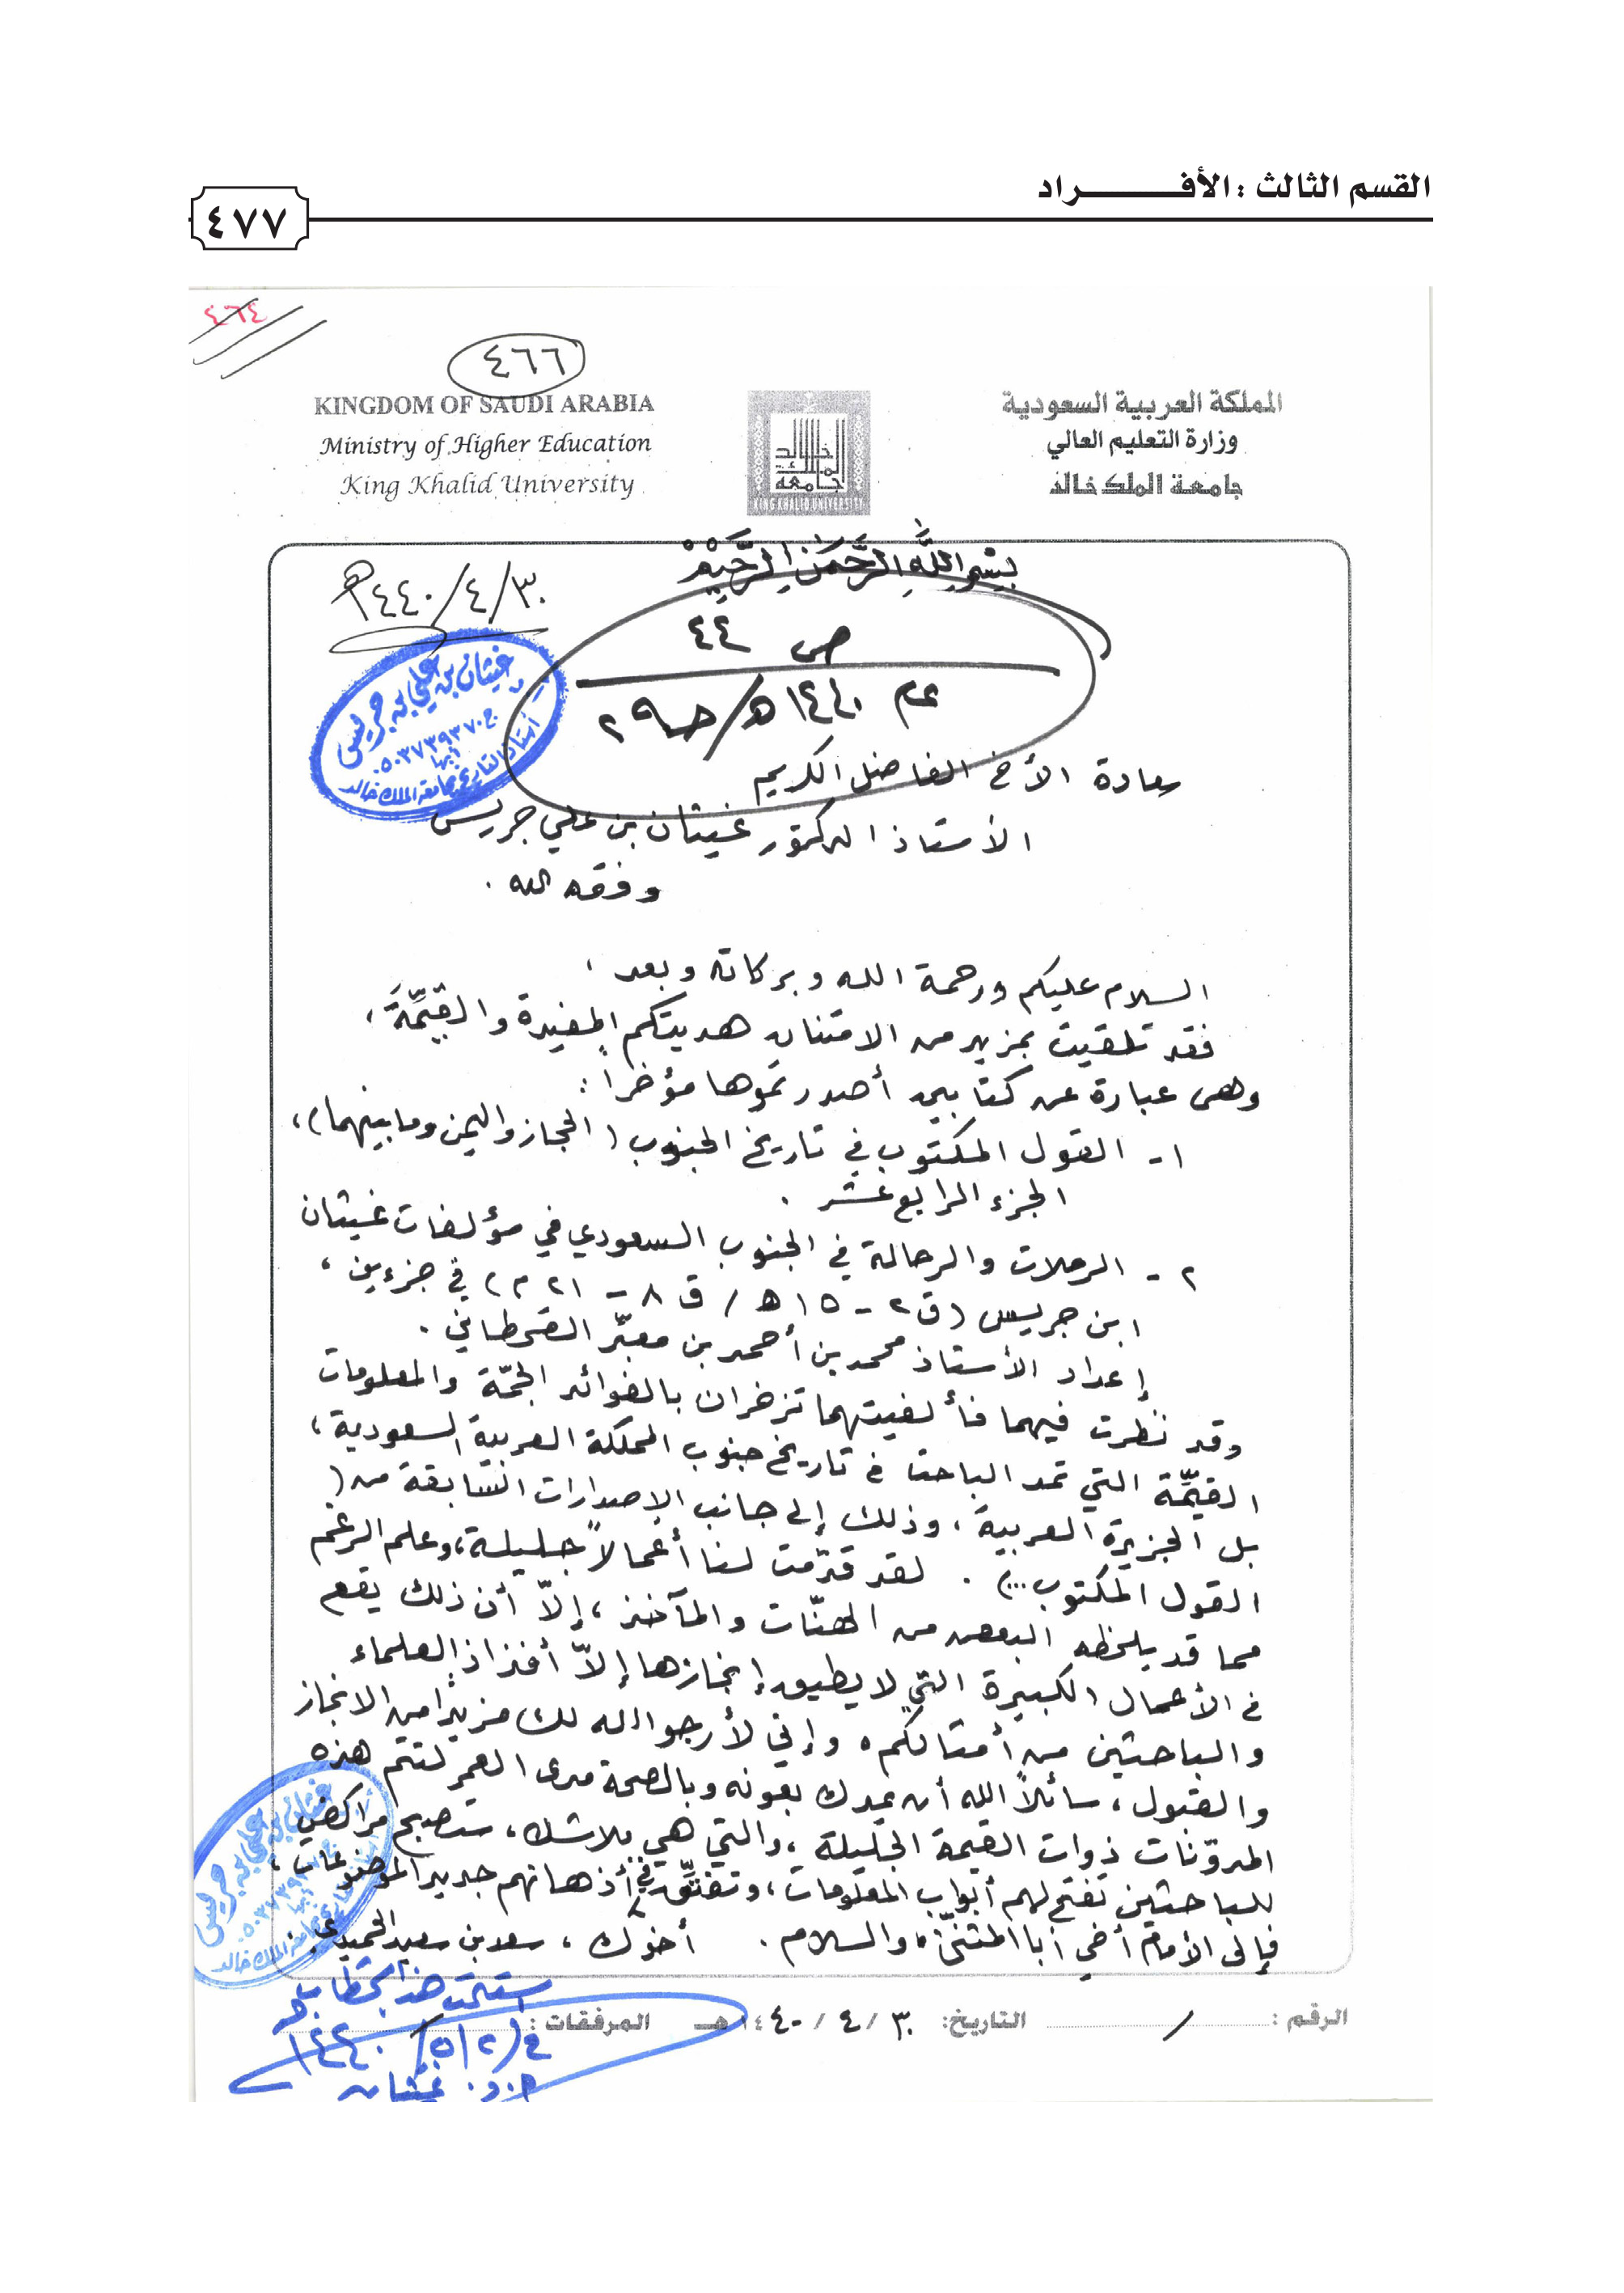 القسم الثالث : الأفـــــــراد
٤٧٧
٤٦٤
٤٦٦
KINGDOM OF SAUDI ARABIA
Ministry of Higher Education
King Khalid University
المملكة العربية السعودية
وزارة التعليم العالي
جامعة الملك خالد
جامعة الملك خالد
KING KHALID UNIVERSITY
بسم الله الرحمن الرحيم
٣٠/٤/١٤٤٠هـ
ص ٤٤
عام ١٤٤٠هـ/حـ٢٩
غيثان بن علي بن جريس
ج٠٥٠٣٧٣٩٣٧
أبها
أستاذ التاريخ بجامعة الملك خالد
سعادة الأخ الفاضل الكريم
الأستاذ الدكتور غيثان بن علي جريس
وفقه الله .
السلام عليكم ورحمة الله وبركاته وبعد ،
فقد تلقيت بمزيد من الامتنان هديتكم المفيدة والقيِّمَة ،
وهي عبارة عن كتابين أصدرتموها مؤخراً :
١- القول المكتوب في تاريخ الجنوب (الحجاز واليمن وما بينهما) ،
الجزء الرابع عشر .
٢ - الرحلات والرحالة في الجنوب السعودي في مؤلفات غيثان
ابن جريس (ق٢ - ١٥هـ / ق ٨ - ٢١م) في جزءين ،
إعداد الأستاذ محمد بن أحمد بن معبّر القحطاني .
وقد نظرت فيهما فألفيتهما تزخران بالفوائد الجمّة والمعلومات
القيّمة التي تمد الباحث في تاريخ جنوب المملكة العربية السعودية ،
بل الجزيرة العربية ، وذلك إلى جانب الإصدارات السابقة من (
القول المكتوب ...) . لقد قدّمت لنا أعمالاً جليلة ، وعلى الرغم
مما قد يلحظه البعض من الهنّات والمآخذ ، إلاّ أن ذلك يقع
في الأعمال الكبيرة التي لا يطيق إنجازها إلاّ أفذاذ العلماء
والباحثين من أمثالكم ، وإني لأرجو الله لك مزيداً من الانجاز
والقبول ، سائلاً الله أن يمدك بعونه وبالصحة مدى العمر لتتم هذه
المدوّنات ذوات القيمة الجليلة ، والتي هي بلا شك ، ستصبح مراكض
للباحثين تفتح لهم أبواب المعلومات ، وتفتّق في أذهانهم جديد الموضوعات ،
فإلى الأمام أخي أبا المثنّى ، والسلام . أخوك ، سعد بن سعيد الحميدي
استلمت هذا الخطاب
في ٢/٥/١٤٤٠هـ
غيثان
الرقم : / التاريخ: ٣٠ / ٤ / ١٤٤٠هـ المرفقات :